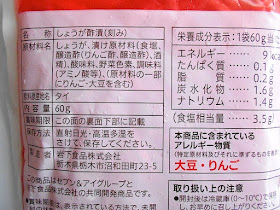 名称 しょうが酢漬(刻み)
原材料名 しょうが、漬け原材料(食塩、
醸造酢(りんご酢、醸造酢)、酒
精)、酸味料、野菜色素、調味料
(アミノ酸等)、(原材料の一部
にりんご・大豆を含む)
原料原産地名 タイ
内容量 60g
賞味期限 この面の裏面下部に記載
保存方法 直射日光・高温多湿を
さけて保存してください。
製造者 岩下食品株式会社
栃木県栃木市沼和田町23-5
この商品はセブン&アイグループと
食品株式会社との共同開発商品です。
栄養成分表示:1袋60g当
エネルギー 9
たんぱく質 0.1
脂質 0.2
炭水化物 1.6
ナトリウム 1.4
(食塩相当量 3.5
本商品に含まれている
アレルギー物質
(特定原材料及びそれに準ずるものを
大豆・りんご
取り扱い上の注意
●開封後は冷蔵庫(0~10℃)